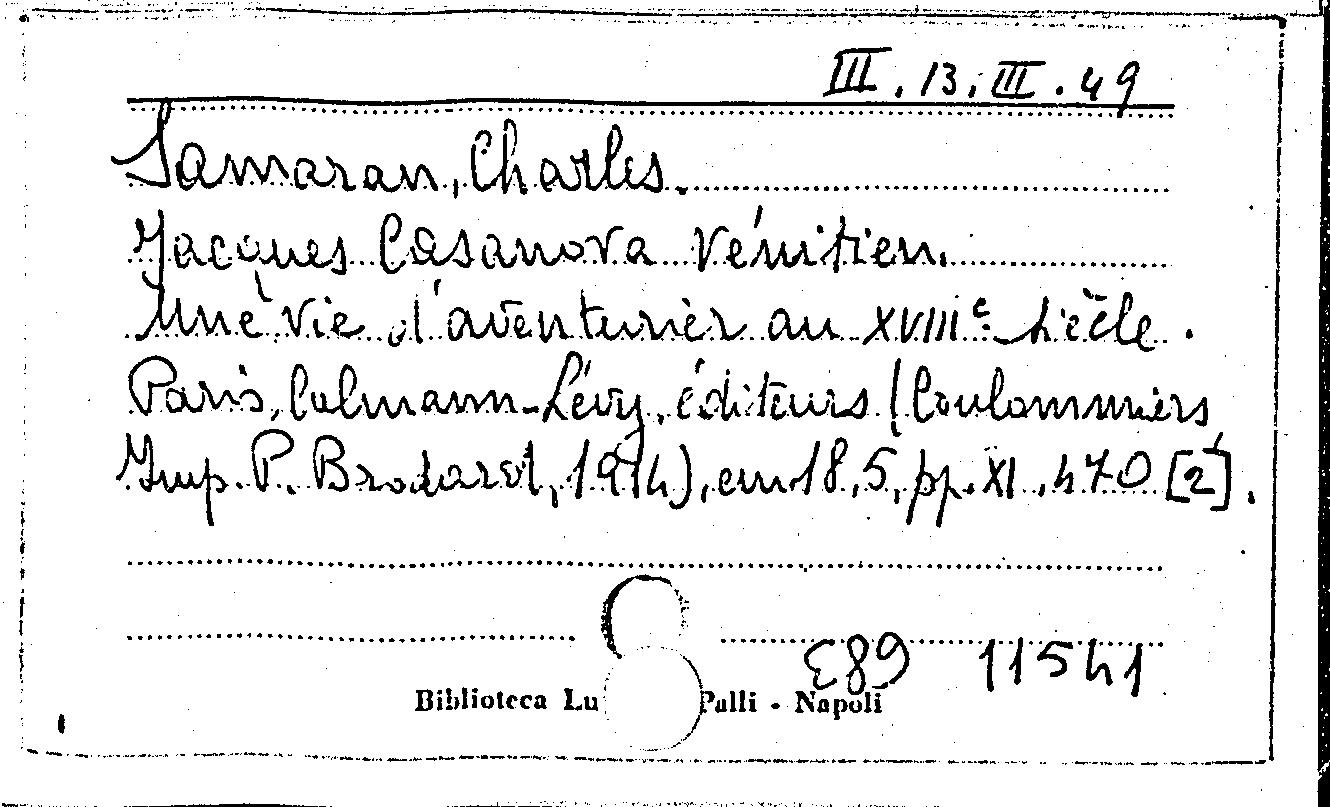 III.13.III.49
Samaran, Charles.
Jacques Casanova vénitien.
Une vie d'aventurier au XVIIIe siècle.
Paris, Calmann-Lévy, éditeurs (Coulommiers,
Imp. P. Brodard, 1914), cm 18,5, pp. XI, 470 [2].
11541
Biblioteca Lu Palli - Napoli